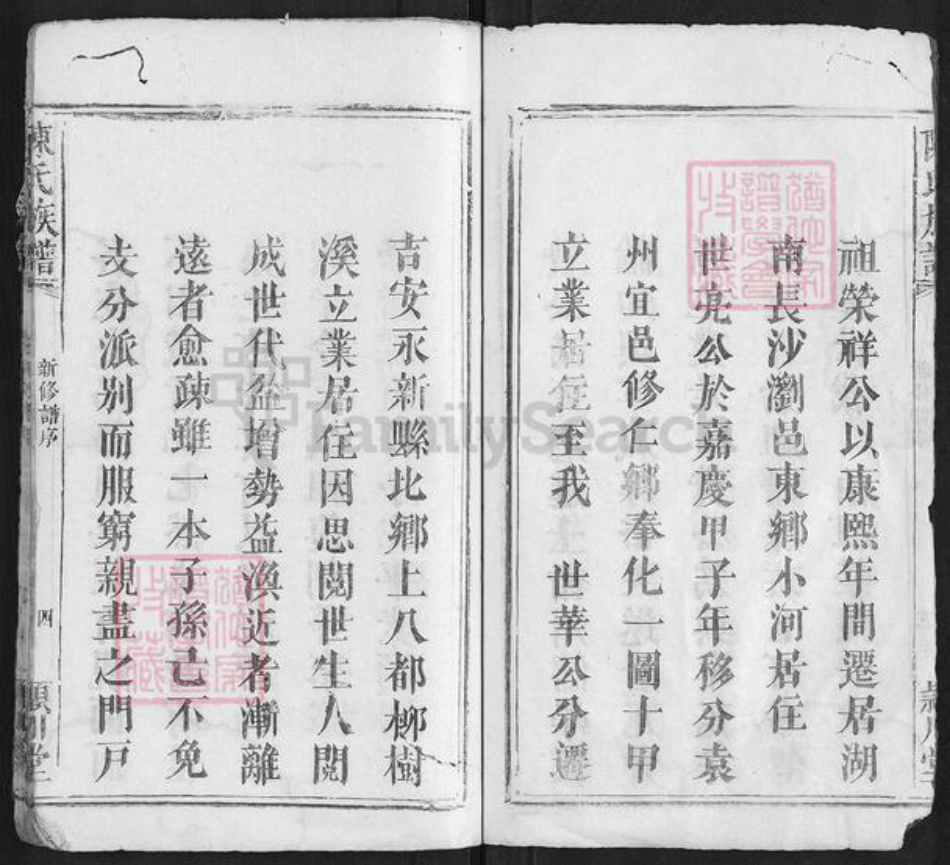 祖榮祥公以康熙年間遷居湖
南長沙瀏邑東鄉小河居住
世亮公於嘉慶甲子年移分袁
州宜邑修仁鄉奉化一圖十甲
立業居住至我 世華公分遷
吉安永新縣北鄉上八都柳樹
溪立業居住因思閱世生人閱
成世代益增勢益渙近者漸離
遠者愈疎雖一本子孫已不免
支分派别而服窮親盡之門戸
陳氏族譜
新修譜序
四
潁川堂
陳氏族譜
潁川堂
FamilySearch